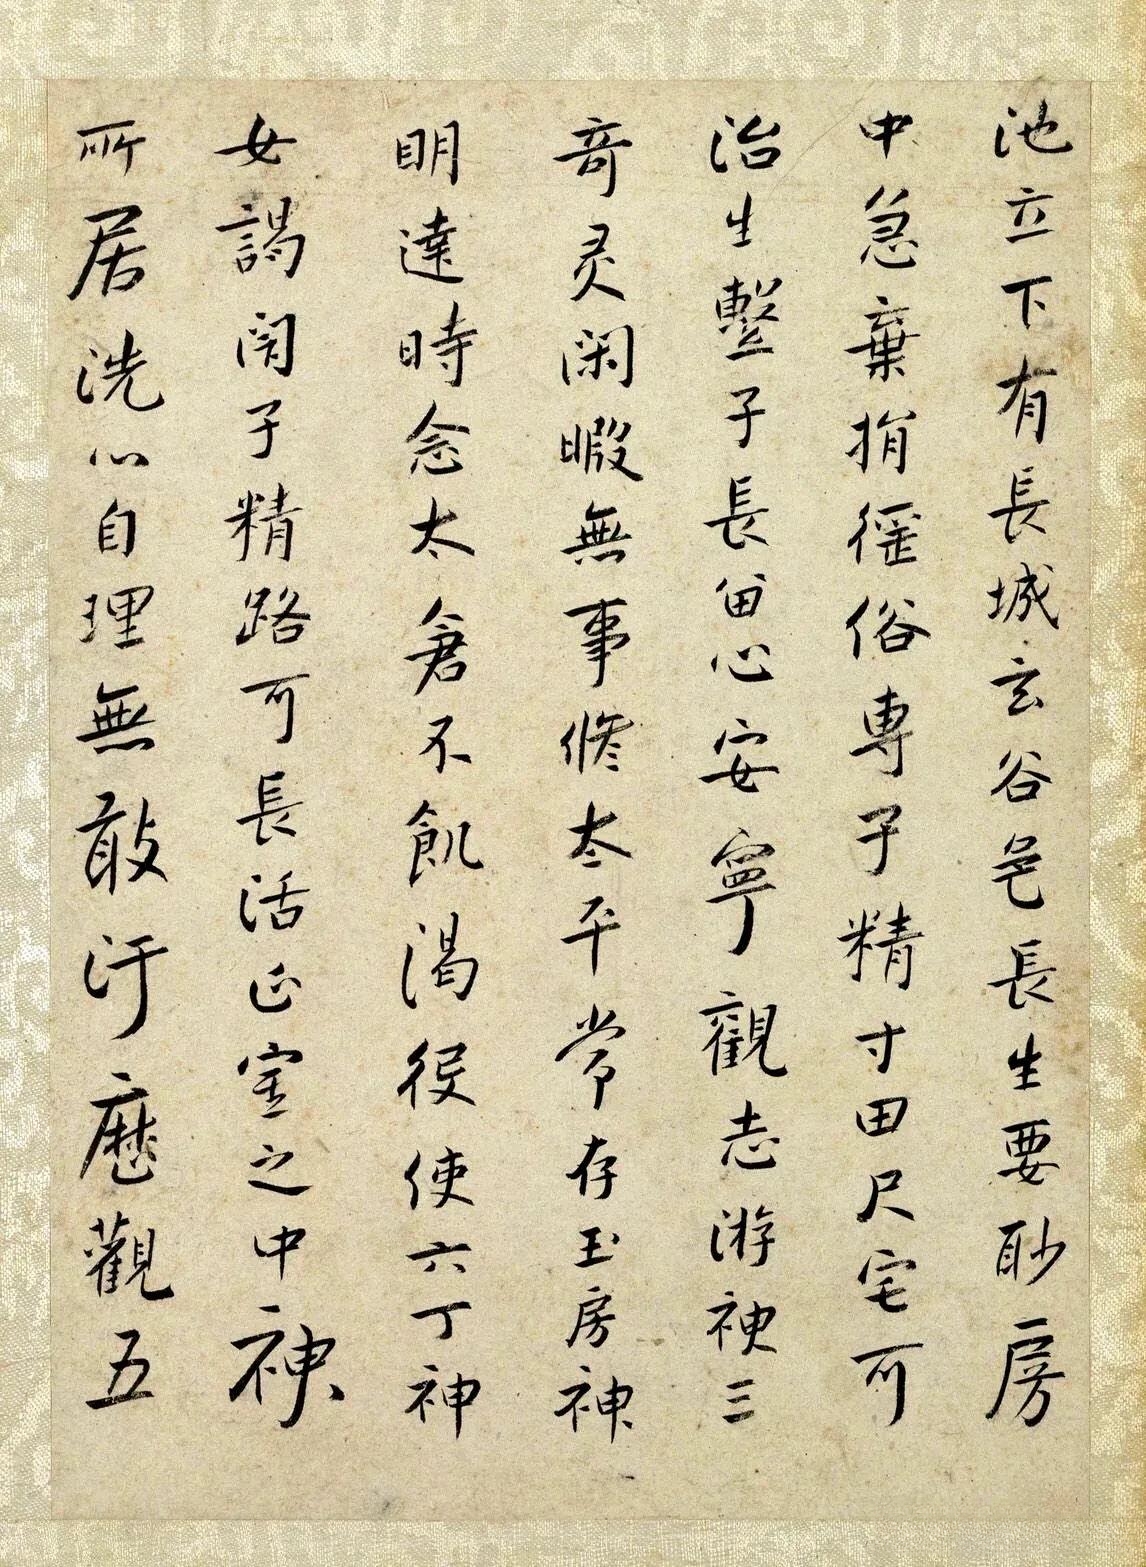 池立下有長城玄谷邑長生要眇房
中急棄捐淫俗専子精寸田尺宅可
治生繫子長留心安寧觀志游神三
奇灵閑暇無事脩太平常存玉房神
明達時念太倉不飢渴役使六丁神
女謁閇子精路可長活正室之中神
所居洗心自理無敢汙歷觀五